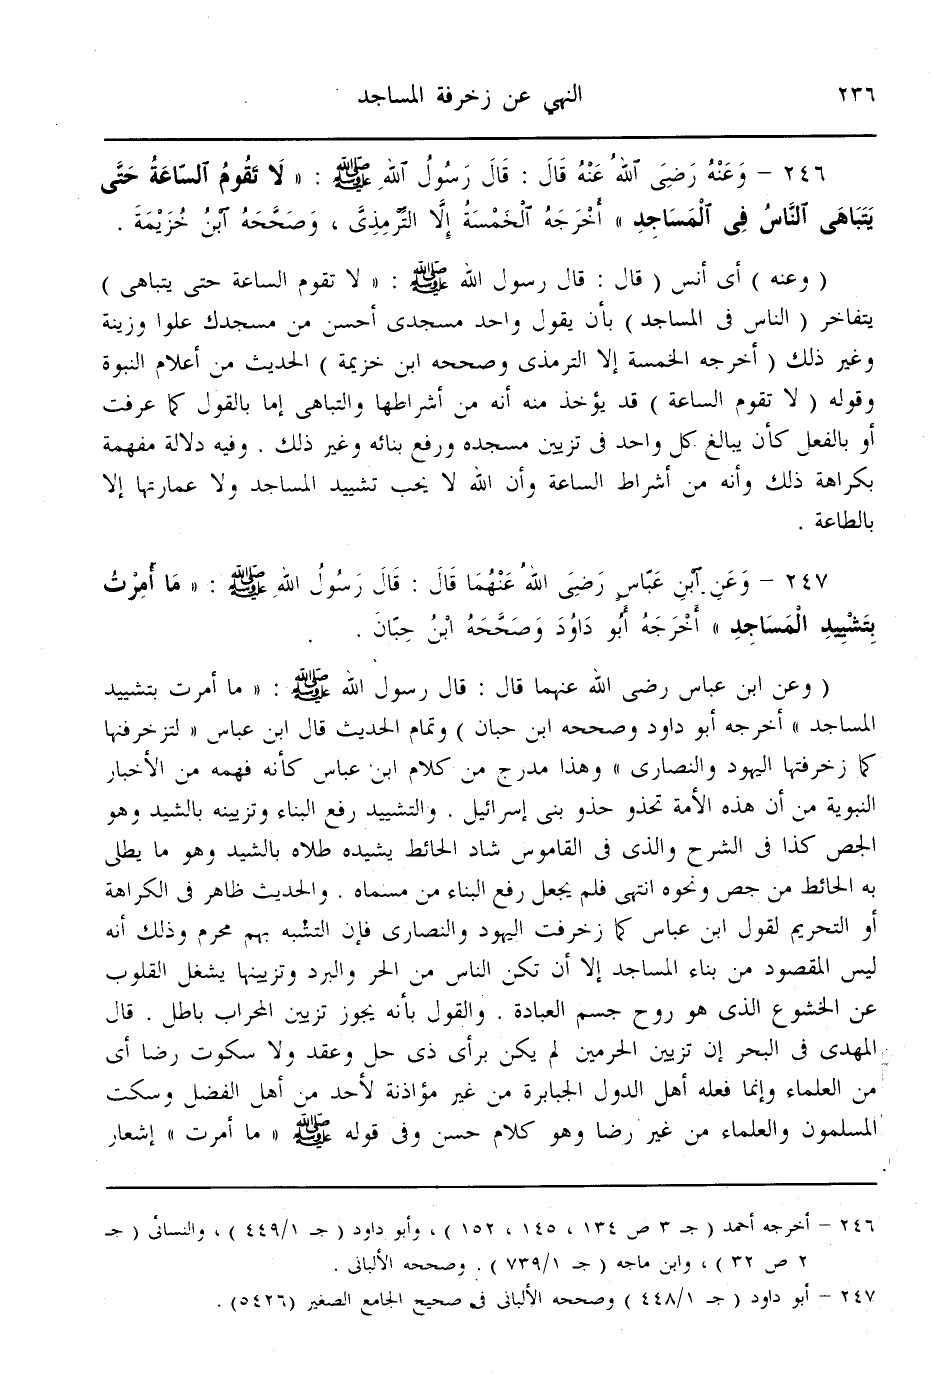 ٢٣٦
النهي عن زخرفة المساجد
٢٤٦ – وَعَنْهُ رَضِيَ ٱللهُ عَنْهُ قَالَ : قَالَ رَسُولُ ٱللهِ ﷺ : « لَا تَقُومُ ٱلسَّاعَةُ حَتَّى
يَتَبَاهَى ٱلنَّاسُ فِى ٱلْمَسَاجِدِ » أَخْرَجَهُ ٱلْخَمْسَةُ إِلَّا التِّرْمِذِىَّ ، وَصَحَّحَهُ ٱبْنُ خُزَيْمَةَ .
( وعنه ) أى أنس ( قال : قال رسول الله ﷺ : « لا تقوم الساعة حتى يتباهى )
يتفاخر ( الناس فى المساجد ) بأن يقول واحد مسجدى أحسن من مسجدك علوا وزينة
وغير ذلك ( أخرجه الخمسة إلا الترمذى وصححه ابن خزيمة ) الحديث من أعلام النبوة
وقوله ( لا تقوم الساعة ) قد يؤخذ منه أنه من أشراطها والتباهى إما بالقول كما عرفت
أو بالفعل كأن يبالغ كل واحد فى تزيين مسجده ورفع بنائه وغير ذلك . وفيه دلالة مفهمة
بكراهة ذلك وأنه من أشراط الساعة وأن الله لا يحب تشييد المساجد ولا عمارتها إلا
بالطاعة .
٢٤٧ – وَعَنِ ٱبْنِ عَبَّاسٍ رَضِىَ اللهُ عَنْهُمَا قَالَ : قَالَ رَسُولُ اللهِ ﷺ : « مَا أُمِرْتُ
بِتَشْيِيدِ الْمَسَاجِدِ » أَخْرَجَهُ أَبُو دَاوُدَ وَصَحَّحَهُ ابْنُ حِبَّانَ .
( وعن ابن عباس رضى الله عنهما قال : قال رسول الله ﷺ : « ما أمرت بتشييد
المساجد » أخرجه أبو داود وصححه ابن حبان ) وتمام الحديث قال ابن عباس « لتزخرفنها
كما زخرفتها اليهود والنصارى » وهذا مدرج من كلام ابن عباس كأنه فهمه من الأخبار
النبوية من أن هذه الأمة تحذو حذو بنى إسرائيل . والتشييد رفع البناء وتزيينه بالشيد وهو
الجص كذا فى الشرح والذى فى القاموس شاد الحائط يشيده طلاه بالشيد وهو ما يطلى
به الحائط من جص ونحوه انتهى فلم يجعل رفع البناء من مسماه . والحديث ظاهر فى الكراهة
أو التحريم لقول ابن عباس كما زخرفت اليهود والنصارى فإن التشبه بهم محرم وذلك أنه
ليس المقصود من بناء المساجد إلا أن تكن الناس من الحر والبرد وتزيينها يشغل القلوب
عن الخشوع الذى هو روح جسم العبادة . والقول بأنه يجوز تزيين المحراب باطل . قال
المهدى فى البحر إن تزيين الحرمين لم يكن برأى ذى حل وعقد ولا سكوت رضا أى
من العلماء وإنما فعله أهل الدول الجبابرة من غير مؤاذنة لأحد من أهل الفضل وسكت
المسلمون والعلماء من غير رضا وهو كلام حسن وفى قوله ﷺ « ما أمرت » إشعار
٢٤٦ – أخرجه أحمد ( جـ ٣ ص ١٣٤ ، ١٤٥ ، ١٥٢ ) ، وأبو داود ( جـ ٤٤٩/١ ) ، والنسائى ( جـ
٢ ص ٣٢ ) ، وابن ماجه ( جـ ٧٣٩/١ ) . وصححه الألبانى .
٢٤٧ – أبو داود ( جـ ٤٤٨/١ ) وصححه الألبانى فى صحيح الجامع الصغير (٥٤٢٦) .